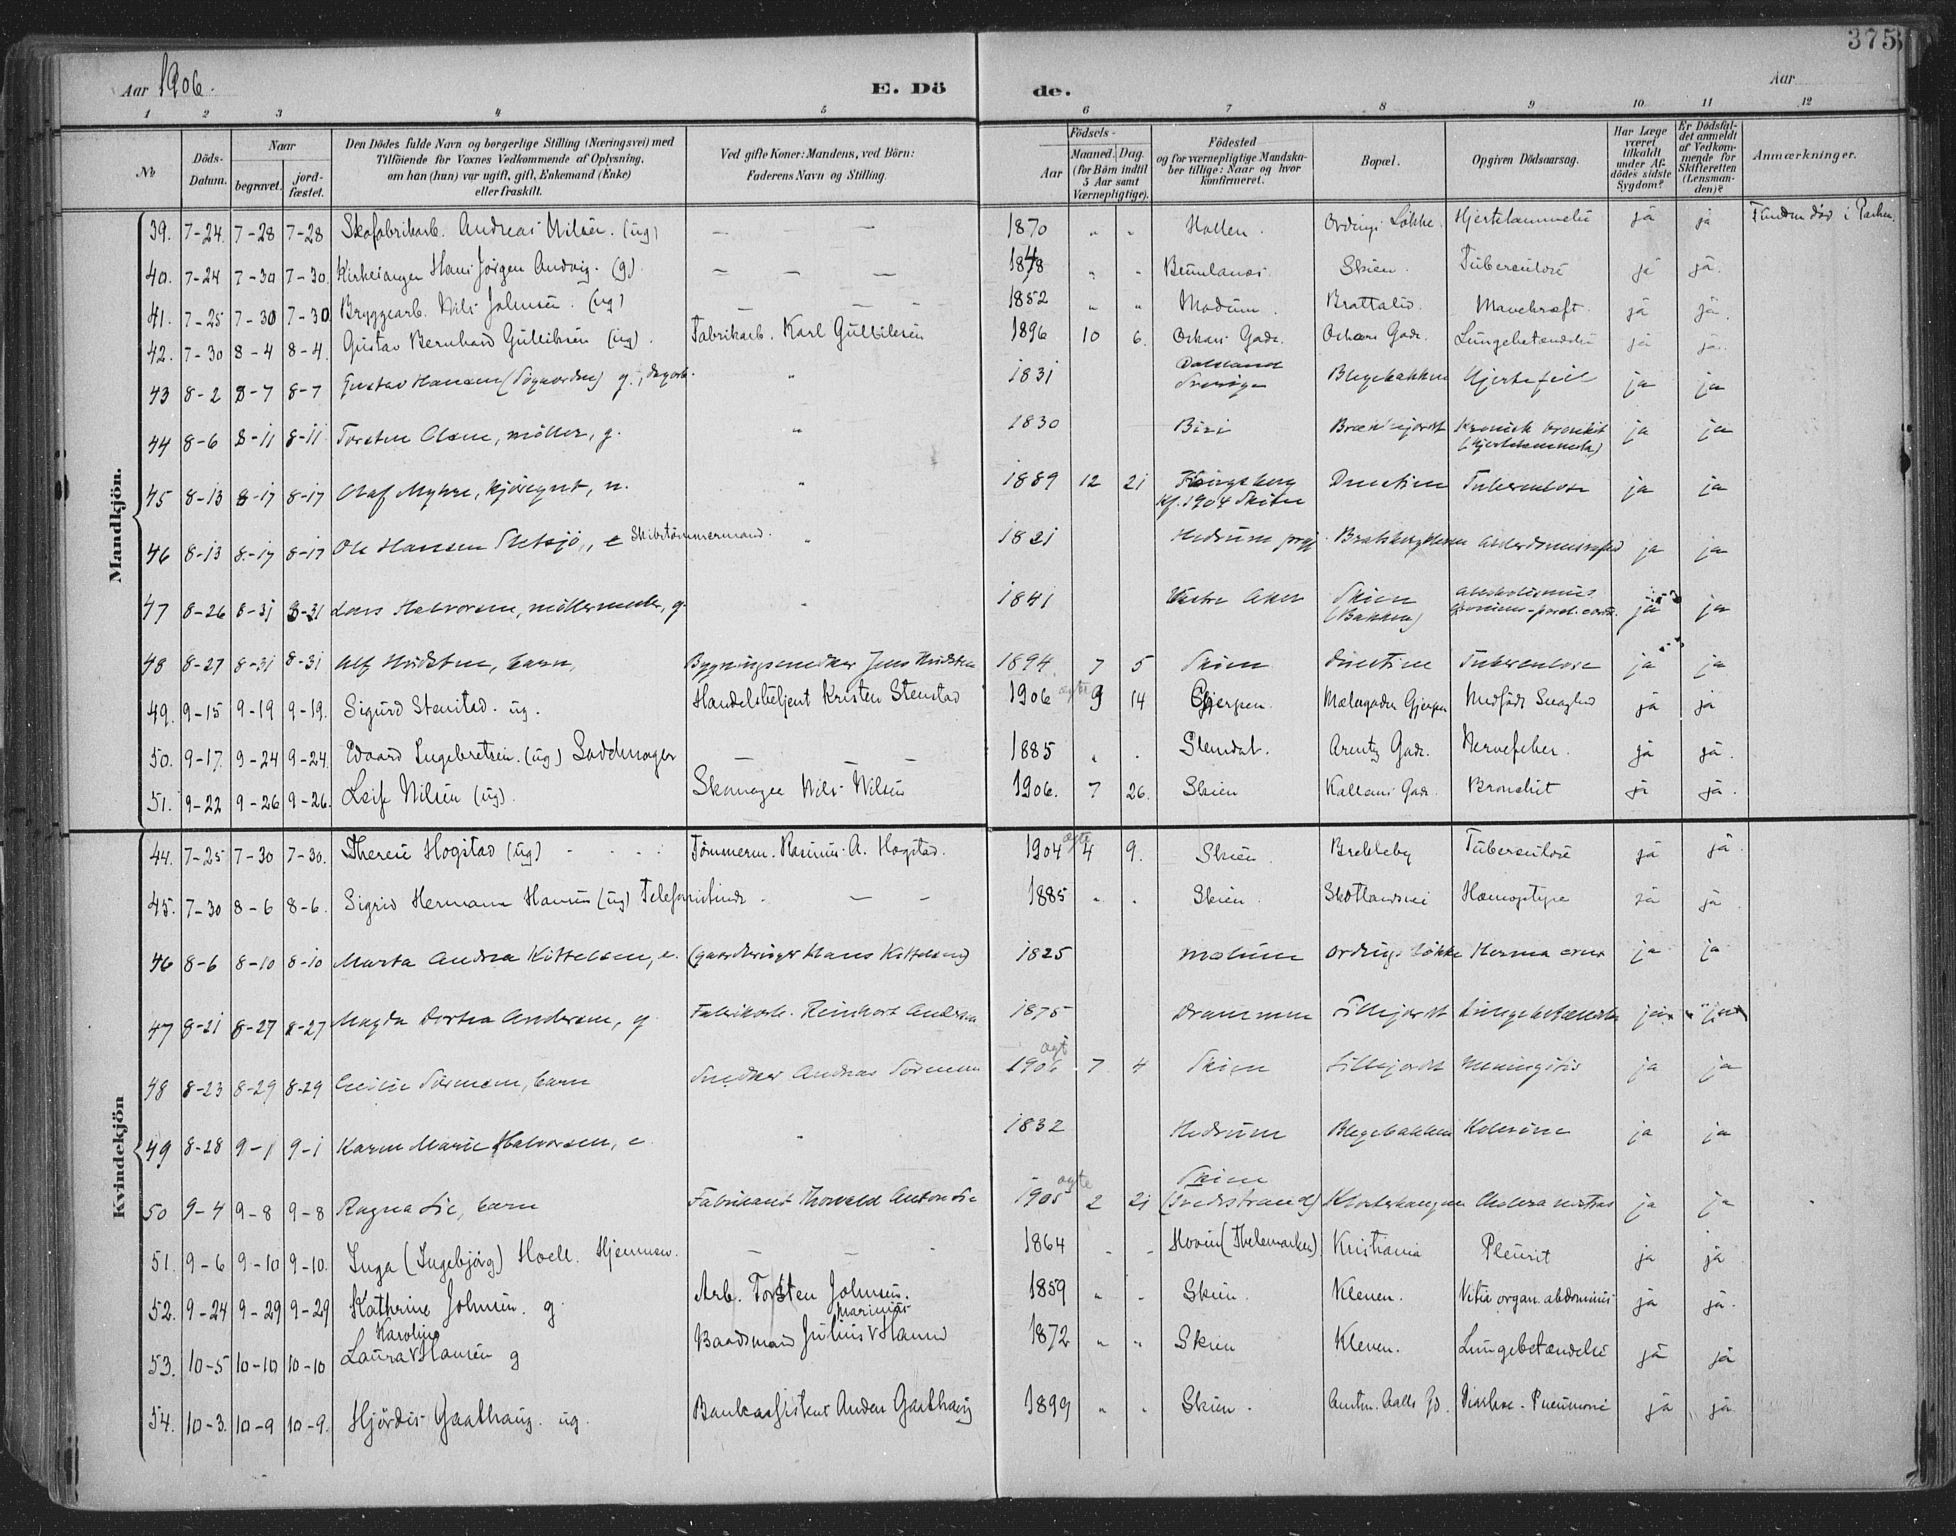 375
Aar 1906.
E. Döde.
Aar
1 2 3 4 5 6 7 8 9 10 11 12
No
Döds-Datum.
Naar
begravet.
jordfæstet.
Den Dödes fulde Navn og borgerlige Stilling (Næringsvei) med
Tilföiende for Voxnes Vedkommende af Oplysning,
om han (hun) var ugift, gift, Enkemand (Enke)
eller fraskilt.
Ved gifte Koner: Mandens, ved Börn:
Faderens Navn og Stilling.
Födsels-
Aar
Maaned. Dag.
(for Børn indtil
5 Aar samt
Værnepligtige).
Födested
og for værnepligtige Mandskaber tillige: Naar og hvor
konfirmeret.
Bopæl.
Opgiven Dödsaarsag.
Har Læge
været
tilkaldt
under Afdödes sidste
Sygdom?
Er Dödsfaldet anmeldt
af Vedkommende for
Skifteretten
(Lensmanden)?
Anmærkninger.
Mandkjön.
39. 7-24. 7-28 7-28 Skofabrikarb. Andreas Nilsen. (ug) — — — 1870 " " Hollen. Ordings Løkke. Hjertelammelse jà jà Funden død i Parken.
40. 7-24 7-30 7-30. Kirkesanger Hans Jørgen Andvig. (g). — — — 1848 " " Brunlanæs. Skien. Tuberculose jà jà.
41. 7-25 7-30 7-30 Bryggearb. Nils Johnsen. (ug) — — — 1852 " " Modum. Brattalid. Mavekræft. jà jà.
42. 7-30 8-4 8-4. Gustav Bernhard Gulliksen (ug). Fabrikarb. Karl Gulliksen 1896 10 6. Oskars Gade. Oskars Gade. Lungebetændelse jà jà.
43 8-2 8-7 8-7 Gustav Hansen (Sognorden) g., dagarb. " 1831 Dalsland Sverige Blegebakken Hjertefeil ja ja
44 8-6 8-11 8-11 Torsten Olsen, møller, g. " 1830 Biri Kronisk bronkit (Hjertelammelse) ja ja
45 8-13 8-17 8-17 Olaf Myhre, kjøregut, u. " 1889 12 21 Kongsberg Kf. 1904 Skien Duestien Tuberculose ja ja
46 8-13 8-17 8-17 Ole Hansen Sletsjø, e Skibstømmermand. " 1821 Hedrum prgj. Bratsbergkleven Alderdomssvaghed ja ja
47 8-26 8-31 8-31 Lars Halvorsen, møllermester, g. " 1841 Vestre Aker Skien (Bakken) alcoholismus ja ja
48 8-27 8-31 8-31 Alf Hvidsten, barn, Bygningssnedker Jens Hvidsten 1894 7 5 Skien Duestien Tuberculose ja ja
49. 9-15 9-19 9-19. Sigurd Stenstad. ug. Handelsbetjent Kristen Stenstad 1906 ægte 9 14 Gjerpen. Mælagader Gjerpen Medfødt Svaghed jà jà
50. 9-17. 9-24 9-24. Edvard Ingebretsen. (ug) Saddmager — — — 1885 " " Slemdal. Arentz Gade. Nervefeber. jà jà.
51. 9-22 9-26 9-26. Leif Nilsen (ug). Skomager Nils Nilsen 1906. 7 26. Skien Kallans Gade. Bronchit jà jà.
Kvindekjön
44. 7-25 7-30 7-30. Therese Hogstad (ug) Tømmerm. Rasmus A. Hogstad. 1904 ægte 4 9. Skien. Brekkeby Tuberculose jà jà.
45. 7-30 8-6 8-6. Sigrid Hermana Hansen (ug) Telefonistinde. — — 1885 " " Skien. Skotlandsvei Hæmoptyse jà jà.
46 8-6 8-10 8-10 Marta Andrea Kittelsen, e. (gaardbruger Hans Kittelsen) 1825 Molum Ordings løkke ja ja
47 8-21 8-27 8-27 Magda Dortea Andersen, g Fabrikarb. Reinhart Andersen 1875 Drammen Lillejordet Lungebetændelse ja ja
48 8-23 8-29 8-29 Cecilie Sørensen, barn Snedker Andreas Sørensen 1906 ægt 7 4 Skien Lillejordet Meningitis ja ja
49 8-28 9-1 9-1 Karen Marie Halvorsen, e " 1832 Hedrum Blegebakken Kolerine ja ja
50 9-4 9-8 9-8 Ragna Lie, barn Fabrikant Thorvald Anton Lie 1905 ægte 2 21 Skien (Tredestrand) Klosterhaugen Cholera nostras ja ja
51. 9-6 9-10 9-10. Inga (Ingebjørg) Hoell. Hjemmev. — — 1864 " " Hovin (Thelemarken) Kristiania Pleurit ja jà
52. 9-24 9-29 9-29 Kathrine Johnsen. g. Arb. Torsten Johnsen. 1859 " " Skien. Kleven. Vitia organ. abdominis jà jà.
53. 10-5 10-10 10-10 Laura Karoline Hansen g Baadsmand Julius Marinius Hansen 1872 " " Skien Kleven. Lungebetændelse jà jà
54. 10-3. 10-9 10-9. Hjördis Gaathaug. ug. Bankassistent Anders Gaathaug 1899 " " Skien. Amtm. Aalls Gd. Diarrhoe. Pneumoni jà jà